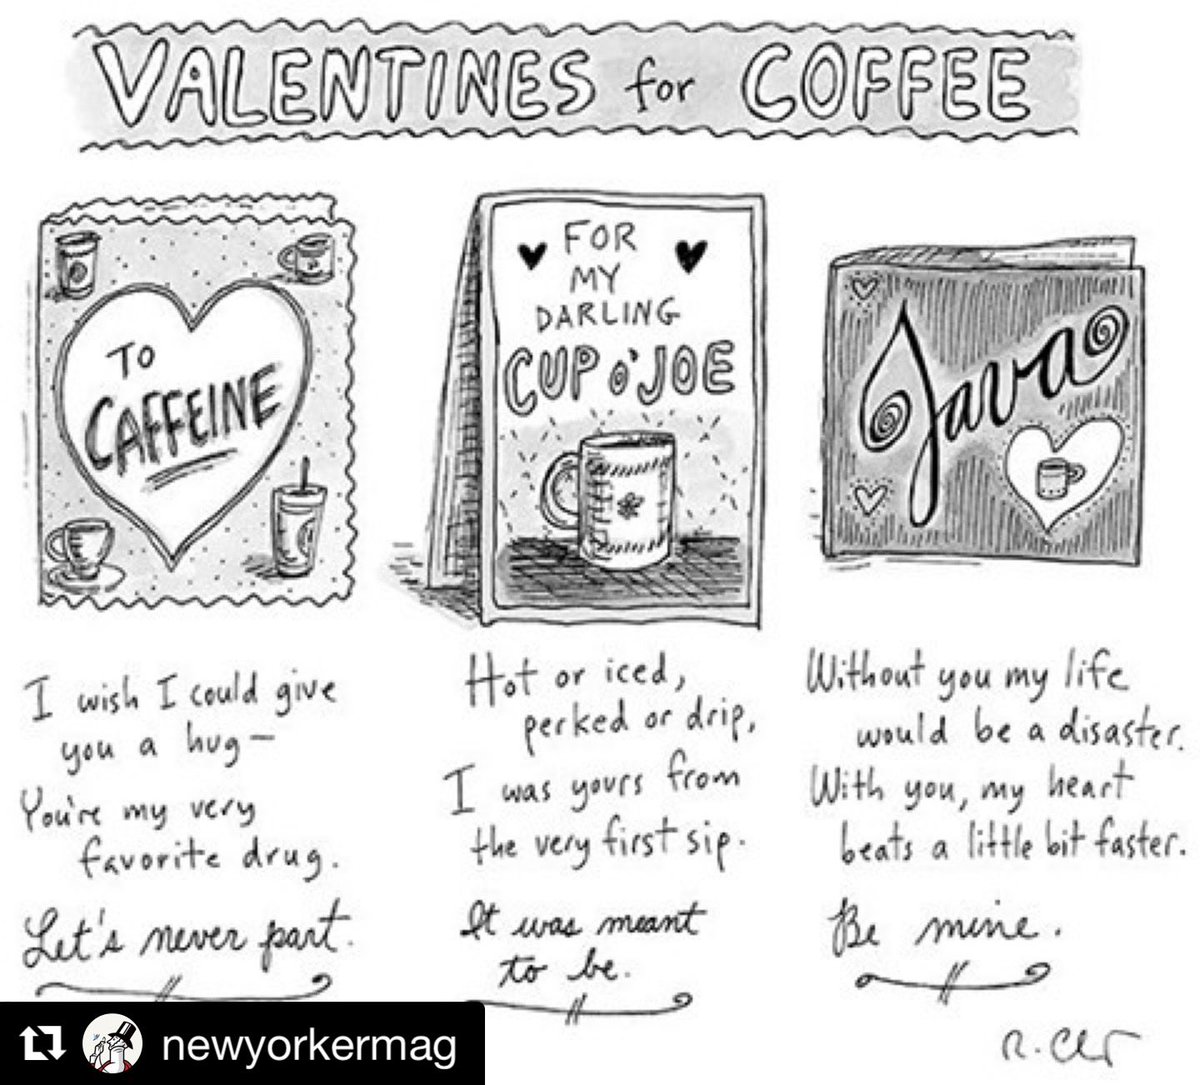 VALENTINES for COFFEE
TO
CAFFEINE
I wish I could give
you a hug—
You're my very
favorite drug.
Let's never part.
FOR
MY
DARLING
CUP O' JOE
Hot or iced,
perked or drip,
I was yours from
the very first sip.
It was meant
to be.
Java
Without you my life
would be a disaster.
With you, my heart
beats a little bit faster.
Be mine.
newyorkermag